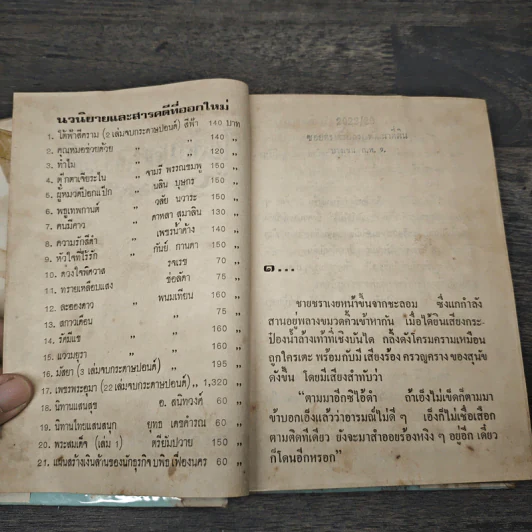 นวนิยายและสารคดีที่ออกใหม่
1. ใต้ฟ้าสีคราม (2 เล่มจบกระดาษปอนด์) สีฟ้า 140 บาท
2. คุณหมอช่วยด้วย " " 140 "
3. ทำไม " " 120 "
4. ตุ๊กตาเจียระไน " จามรี พรรณชมพู 160 "
5. ผู้หมวดปอกแป๊ก " นลิน บุษกร 150 "
6. พธูเทพกานต์ " วลัย นวาระ 150 "
7. คนมีคาว " ดาหลา สุมาลิน 130 "
8. ความรักสีดำ " เพชรน้ำค้าง 140 "
9. หัวใจที่ไร้รัก " กันย์ กานดา 150 "
10. ดวงใจพิศวาส รจเรข 70 "
11. ทรายเหลือบแสง ช่อลัดา 75 "
12. ละอองดาว พนมเทียน 160 "
13. สกาวเดือน " 75 "
14. รัศมีแข " 160 "
15. แววมยุรา " 160 "
16. มัสยา (3 เล่มจบกระดาษปอนด์) " 195 "
17. เพชรพระอุมา (22 เล่มจบกระดาษปอนด์) " 1,320 "
18. นิทานแสนสุข อ. สนิทวงศ์ 60 "
19. นิทานไทยแสนสนุก ยุทธ เดชคำรณ 60 "
20. พระสมเด็จ (เล่ม 1) ตรียัมปวาย 150 "
21. แผ่นสร้างเงินล้านของนักธุรกิจ บพิธ เฟื่องนคร 60 "
๑...
ชายชราเงยหน้าขึ้นจากชะลอม ซึ่งแกกำลัง
สานอยู่พลางขมวดคิ้วเข้าหากัน เมื่อได้ยินเสียงกระ
ป๋องน้ำล้างเท้าที่เชิงบันได กลิ้งดังโครมครามเหมือน
ถูกใครเตะ พร้อมกับมีเสียงร้อง ครวญคราง ของสุนัข
ดังขึ้น โดยมีเสียงสำทับว่า
"ตามมาอีกซิไอ้ดำ ถ้าเอ็งไม่เข็ดก็ตามมา
ข้าบอกเอ็งแล้วว่าอารมณ์ไม่ดี ๆ เอ็งก็ไม่เชื่อเสือก
ตามติดทีเดียว ยังจะมาสำออยร้องหงิง ๆ อยู่อีก เดี๋ยว
ก็โดนอีกหรอก"